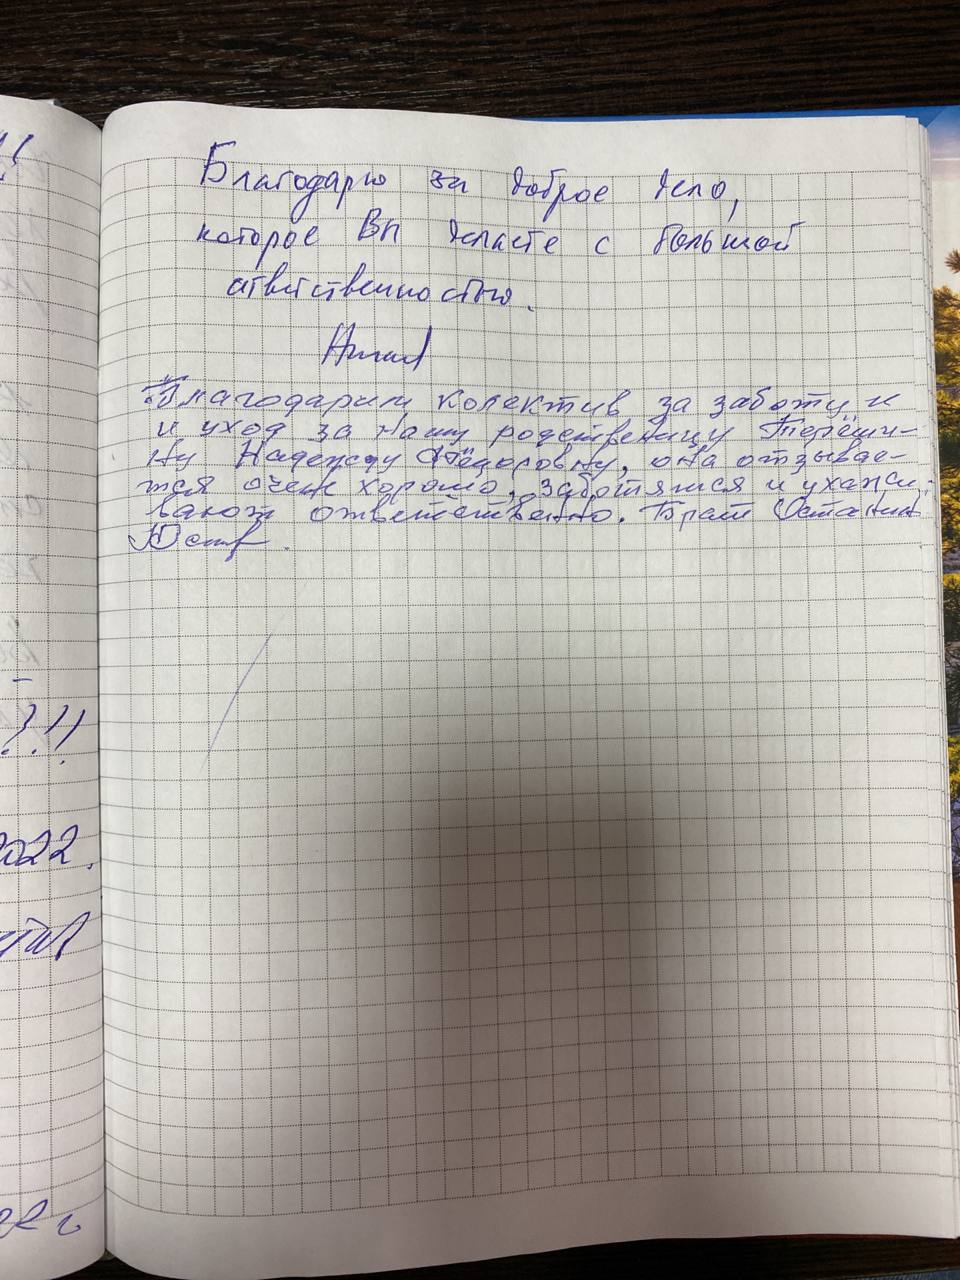 Благодарю за доброе дело,
которое Вы делаете с большой
ответственностью.
Благодарим колектив за заботу и
и уход за нашу родственицу Терёши-
ну Надежду Фёдоровну, она отзывае-
тся очень хорошо, заботятся и ухажи-
вают ответственно. Брат Останин
2022.